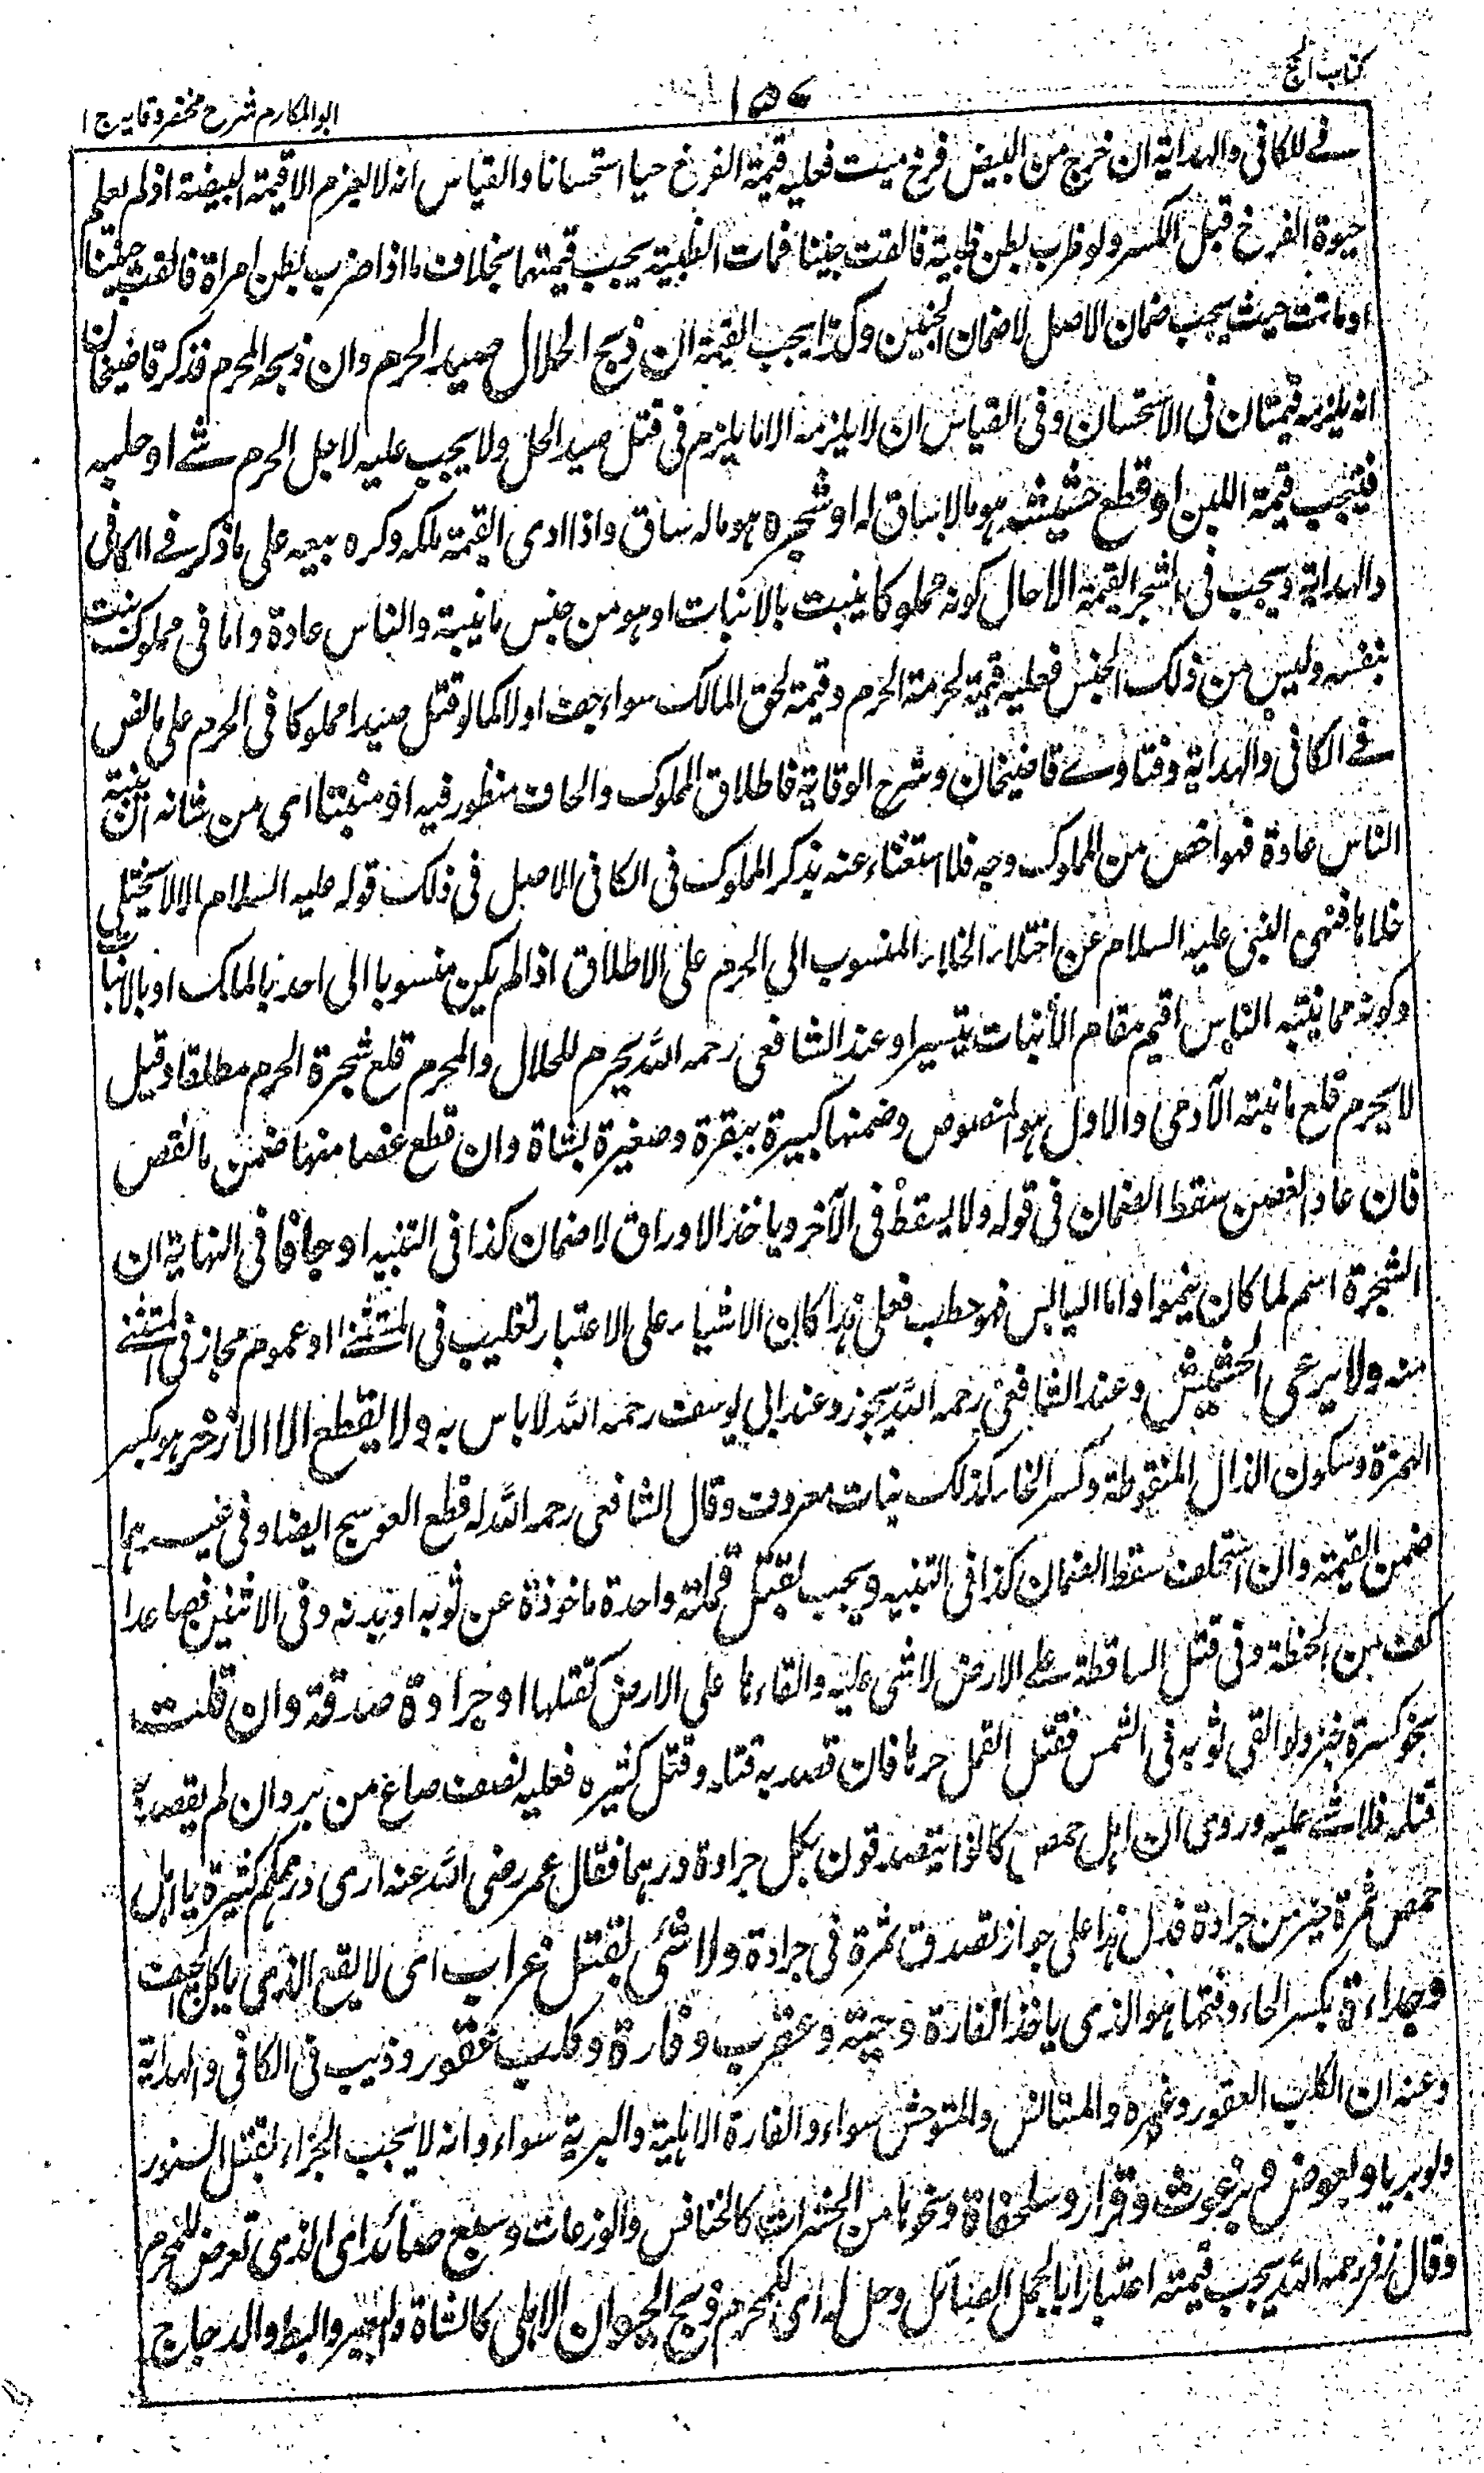 كتاب الحج
١٥٧
ابو المكارم شرح مختصر وقايه ج ١
فے الكافی والهداية ان خرج من البيض فرخ ميت فعليه قيمة الفرخ حيا استحسانا والقياس انه لا يغرم الا قيمة البيضة اذ لم يعلم
حيوة الفرخ قبل الكسر ولو ضرب بطن ظبية فالقت جنينا فماتت الظبية يجب قيمتهما بخلاف ما اذا ضرب بطن امراة فالقت جنينا
او ماتت حيث يجب ضمان الاصل لا ضمان الجنين وكذا يجب القيمة ان ذبح الحلال صيد الحرم وان ذبحه المحرم فذكر قاضيخان
انه يلزمه قيمتان فی الاستحسان وفی القياس ان لا يلزمه الا ما يلزم فی قتل صيد الحل ولا يجب عليه لاجل الحرم شے او حلبه
فتجب قيمة اللبن او قطع حشيشه هو ما لا ساق له او شجره هو ما له ساق واذا ادى القيمة ملكه وكره بيعه على ما ذكر فے الكافی
والهداية ويجب فی الشجر القيمة الا حال كونه مملوكا ينبت بالانبات او هو من جنس ما ينبته الناس عادة واما فی مملوك ينبت
بنفسه وليس من ذلك الجنس فعليه قيمة لحرمة الحرم وقيمة لحق المالك سواء جف اولا كما لو قتل صيدا مملوكا فی الحرم على ما نص
فے الكافی والهداية وفتاوے قاضيخان وشرح الوقاية فاطلاق المملوك والجاف منظور فيه او منبتا ای من شانه ان ينبته
الناس عادة فهو اخص من المملوك من وجه فلا استغناء عنه بذكر المملوك فی الكافی الاصل فی ذلك قوله عليه السلام الا لا يختلى
خلاها فنهى النبی عليه السلام عن اختلاء الخلاء المنسوب الى الحرم على الاطلاق اذا لم يكن منسوبا الى احد بالملك او بالانبات
وكونه مما ينبته الناس اقيم مقام الأنبات تيسيرا وعند الشافعی رحمه الله يحرم للحلال والمحرم قلع شجرة الحرم مطلقا وقيل
لا يحرم قلع ما نبته الآدمی والاول هو المنصوص وضمنها كبيرة ببقرة وصغيرة بشاة وان قطع غصنا منها ضمن ما نقص
فان عاد الغصن سقط الضمان فی قوله ولا يسقط فی الآخر وياخذ الاوراق لا ضمان كذا فی التنبيه او جافا فی النهاية ان
الشجرة اسم لما كان ينموا واما اليابس فهو حطب فعلى هذا كان الاشياء على الاعتبار تغليب فی المستثنے او عموم مجاز فی المستثنے
منه ولا يرعى الحشيش وعند الشافعی رحمه الله يجوز وعند ابی يوسف رحمه الله لا باس به ولا يقطع الا الاذخر هو بكسر
الهمزة وسكون الذال المنقوطة وكسر الخاء كذلك نبات معروف وقال الشافعی رحمه الله له قطع العوسج ايضا وفی غيرهما
ضمن القيمة وان استخلف سقط الضمان كذا فی التنبيه ويجب بقتل قملة واحدة ماخوذة عن ثوبه او بدنه وفی الاثنين فصاعدا
كف من الحنطة وفی قتل الساقطة على الارض لا شئ عليه والقاءها على الارض كقتلها او جرادة صدقة وان قلت
نحو كسرة خبز ولو القى ثوبه فی الشمس فقتل القمل حرها فان قصد به قتله وقتل كثيره فعليه نصف صاع من بر وان لم يقصد به
قتله فلا شے عليه وروى ان اهل حمص كانوا يتصدقون بكل جرادة درهما فقال عمر رضى الله عنه ارى درهمكم كثيرة يا اهل
حمص تمرة خير من جرادة فدل هذا على جواز تصدق تمرة فی جرادة ولا شئ بقتل غراب ای لا يقع الذی ياكل الجيف
وحداءة بكسر الحاء وفتحها هو الذی ياخذ الفارة وحية وعقرب وفارة وكلب عقور وذيب فی الكافی والهداية
وعنه ان الكلب العقور وغيره والمستانس والمتوحش سواء والفارة الاهلية والبرية سواء وانه لا يجب الجزاء بقتل السنور
ولو بريا وبعوض وبرغوث وقراد وسلحفاة ونحوها من الحشرات كالخنافس والوزغات وسبع صائد ای الذی تعرض للمحرم
وقال زفر رحمه الله يجب قيمته اعتبارا بالجمل الصائل وحل له ای للمحرم ذبح الحيوان الاهلى كالشاة والبعير والبط والدجاج